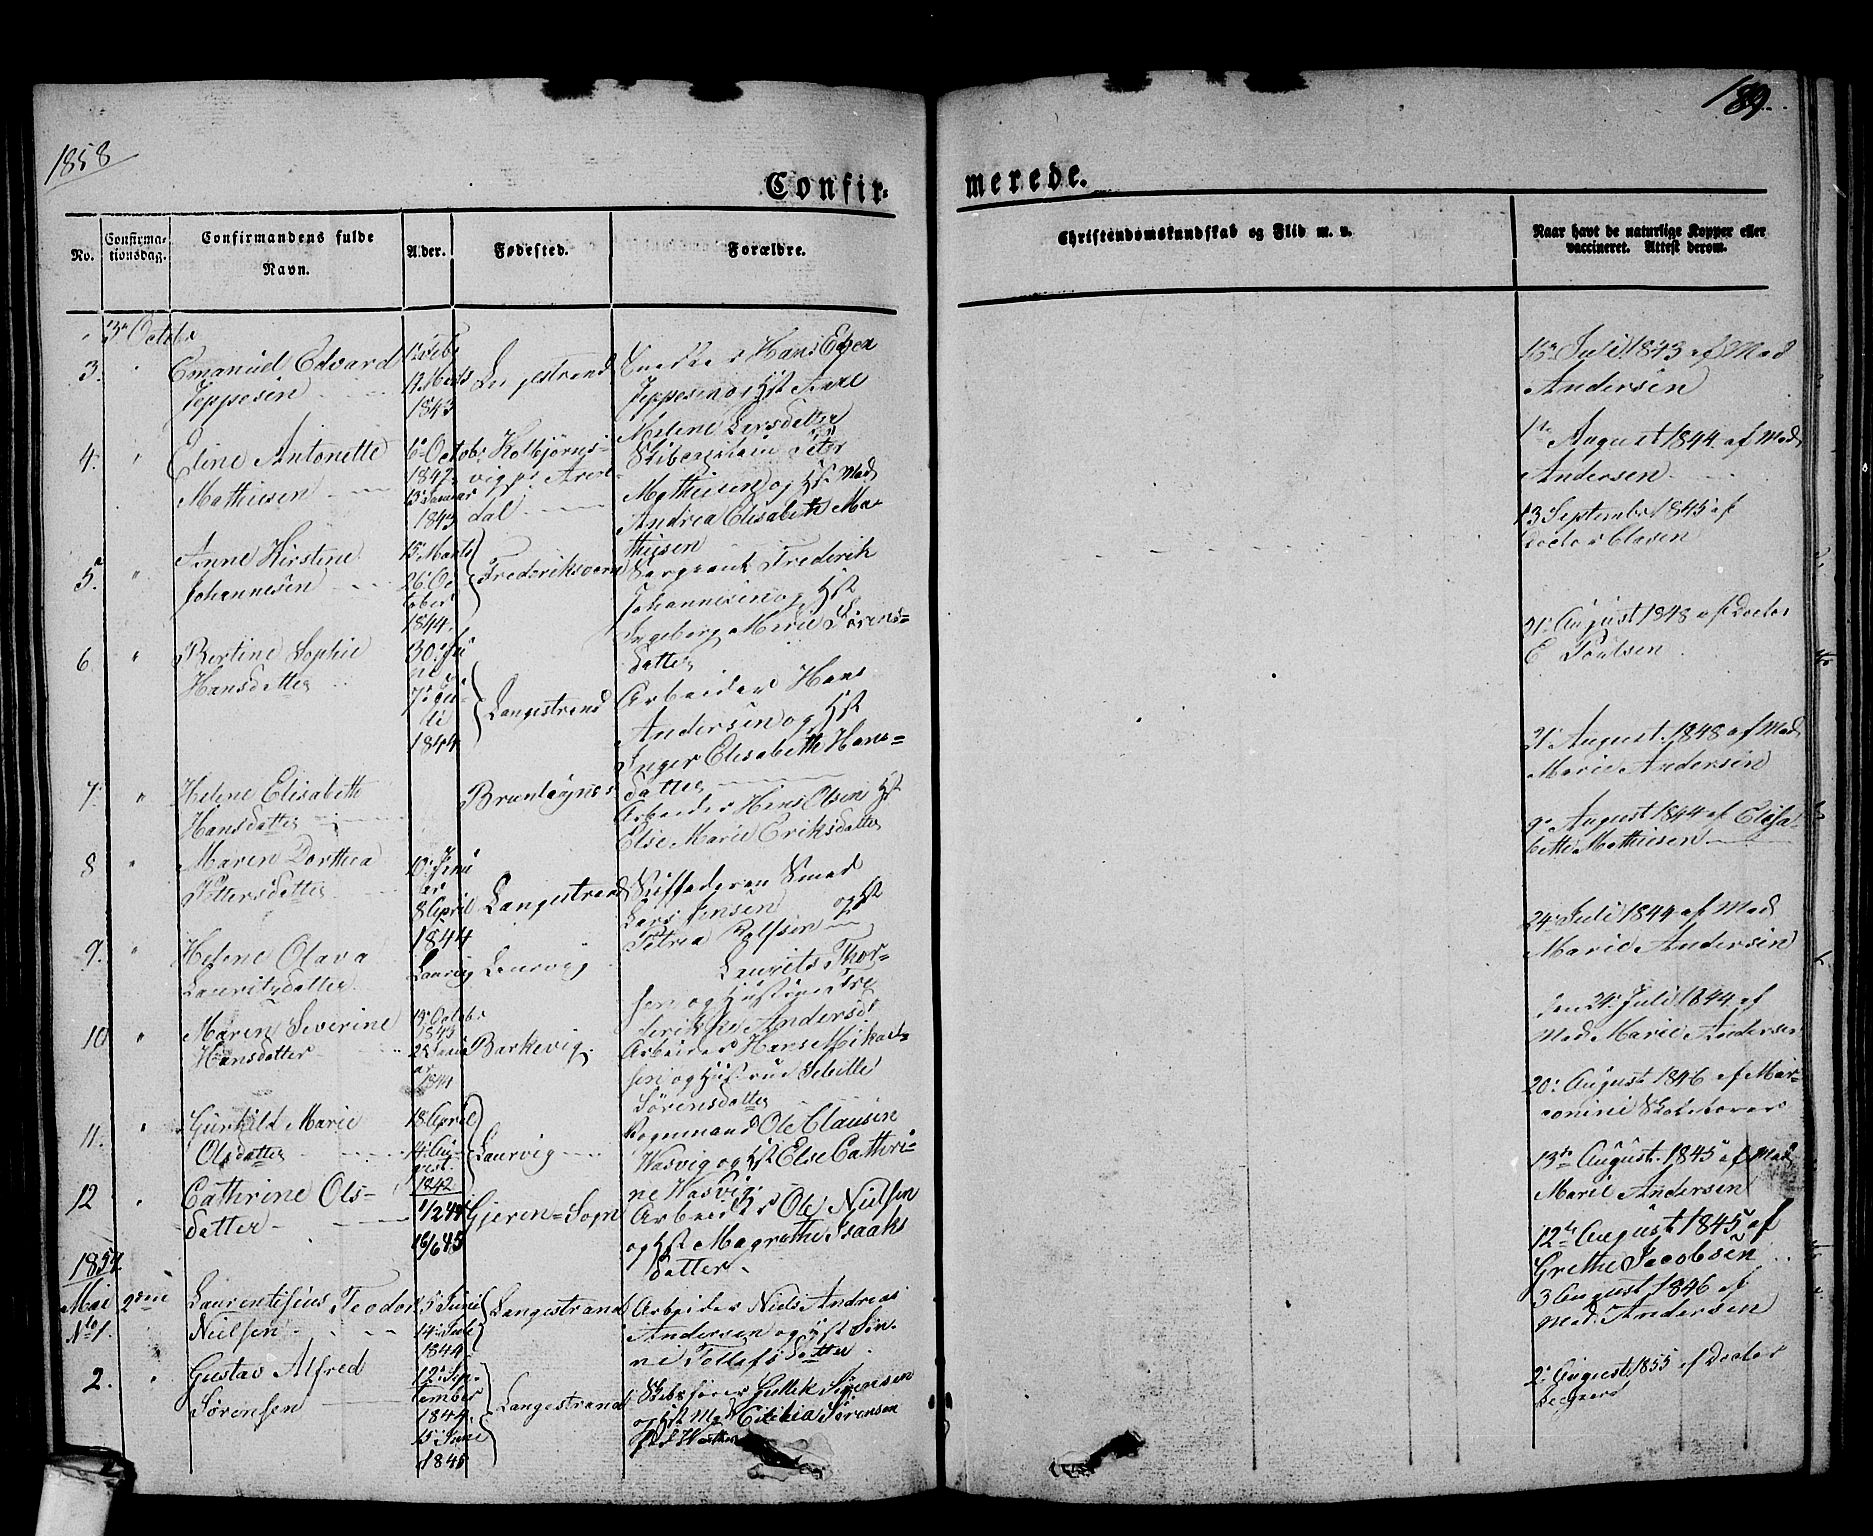 1858
189.
Confir-
merede.
No.
Confirma-
tionsdag.
Confirmandens fulde
Navn.
Alder.
Fødested.
Forældre.
Christendomskundskab og Flid m. v.
Naar havt de naturlige Kopper eller
vaccineret. Attest derom.
3. Emanuel Edvard
Jeppesen
1843
Langestrand
Hans
Jeppesen og Hst Anne
Malene Larsdatter
Juli 1843 af Mad
Andersen
4. Eline Antonette
Mathiesen
6 Octobr
1842
13 Januar
1843
Kolbjørns-
vig pr Aren-
dal
Peter
Mathiesen og Hst Mad
Andrea Elisabeth Ma-
thiesen
1ste August 1844 af Mad
Andersen
5. Anne Kirstine
Johannesen
15 Marts
26 Oc-
tober
1844.
Frederiksværn
Sergeant Frederik
Johannesen og Hst
Ingeborg Marie Sørens-
datter
13 Septembr 1845 af
Doctor Clasen
6 Bertine Sophie
Hansdatter
30 Ju
ni
7 Ju-
li
1844
Langestrand
Arbeider Hans
Andersen og Hst
Inger Elisabeth Hans-
datter
21 August 1848 af Doctor
E Poulsen
7 Helene Elisabeth
Hansdatter
Brunlagnes
Arbeider Hans Olsen Hst
Else Marie Eriksdatter
21 August 1848 af Mad
Marie Andersen
8 Maren Dorthea
Pettersdatter
10 Janu
ar
8 April
1844
Langestrand
Smed
Lars Jensen og Hst
Petrea Rolfsen
9 August 1844 af Elisa-
beth Mathiesen
9. Helene Olava
Lauritzdatter
Laurvig
Laurvig
Laurits Thor-
sen og Hustru
Andersdt
24 Juli 1844 af Mad
Marie Andersen
10 Maren Severine
Hansdatter
19 Octobr
1843
1844
Barkevig.
Arbeider Hans Mikael-
sen og Hustrue Sibille
Sørensdatter
den 24 Juli 1844 af
Mad Marie Andersen
11. Gunhild Marie
Olsdatter
18 April
14 Au-
gust.
1842
Laurvig
Ole Clausen
Wasvig og Hst Else Cathri-
ne Wasvig.
20 August 1846 af
12 Cathrine Ols-
datter
1/2 44
16/6 45
Gjeren-Sogn
Arbeider Ole Nielsen
og Hst Magrethe Isaaks
datter
13de August. 1845 af Mad
Marie Andersen
12te August 1845 af
Grethe Jacobsen
1859
Mai 2den
No 1.
Laurentisius Teodor
Nielsen
5 Juni
14 Juli
1844
Langestrand
Arbeider Niels Andreas
Andersen og Hst Sin-
ni Tollefsdatter
3 August 1846 af
Mad. Andersen
2. Gustav Alfred
Sørensen
12 Sep-
tember
1844
15 Juni
1845
Langestrand
Skibsfører Gullik Sørensen
og Hst Mad Cicilia Sørensen
2 August 1855 af Doctor